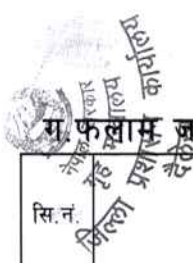 नेपाल सरकार
गृह मन्त्रालय
जिल्ला प्रशासन कार्यालय
ग.फलाम ज
सि.नं.